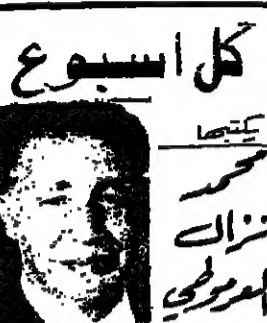 كل اسبوع
يكتبها
محمد
نزال
العرموطي